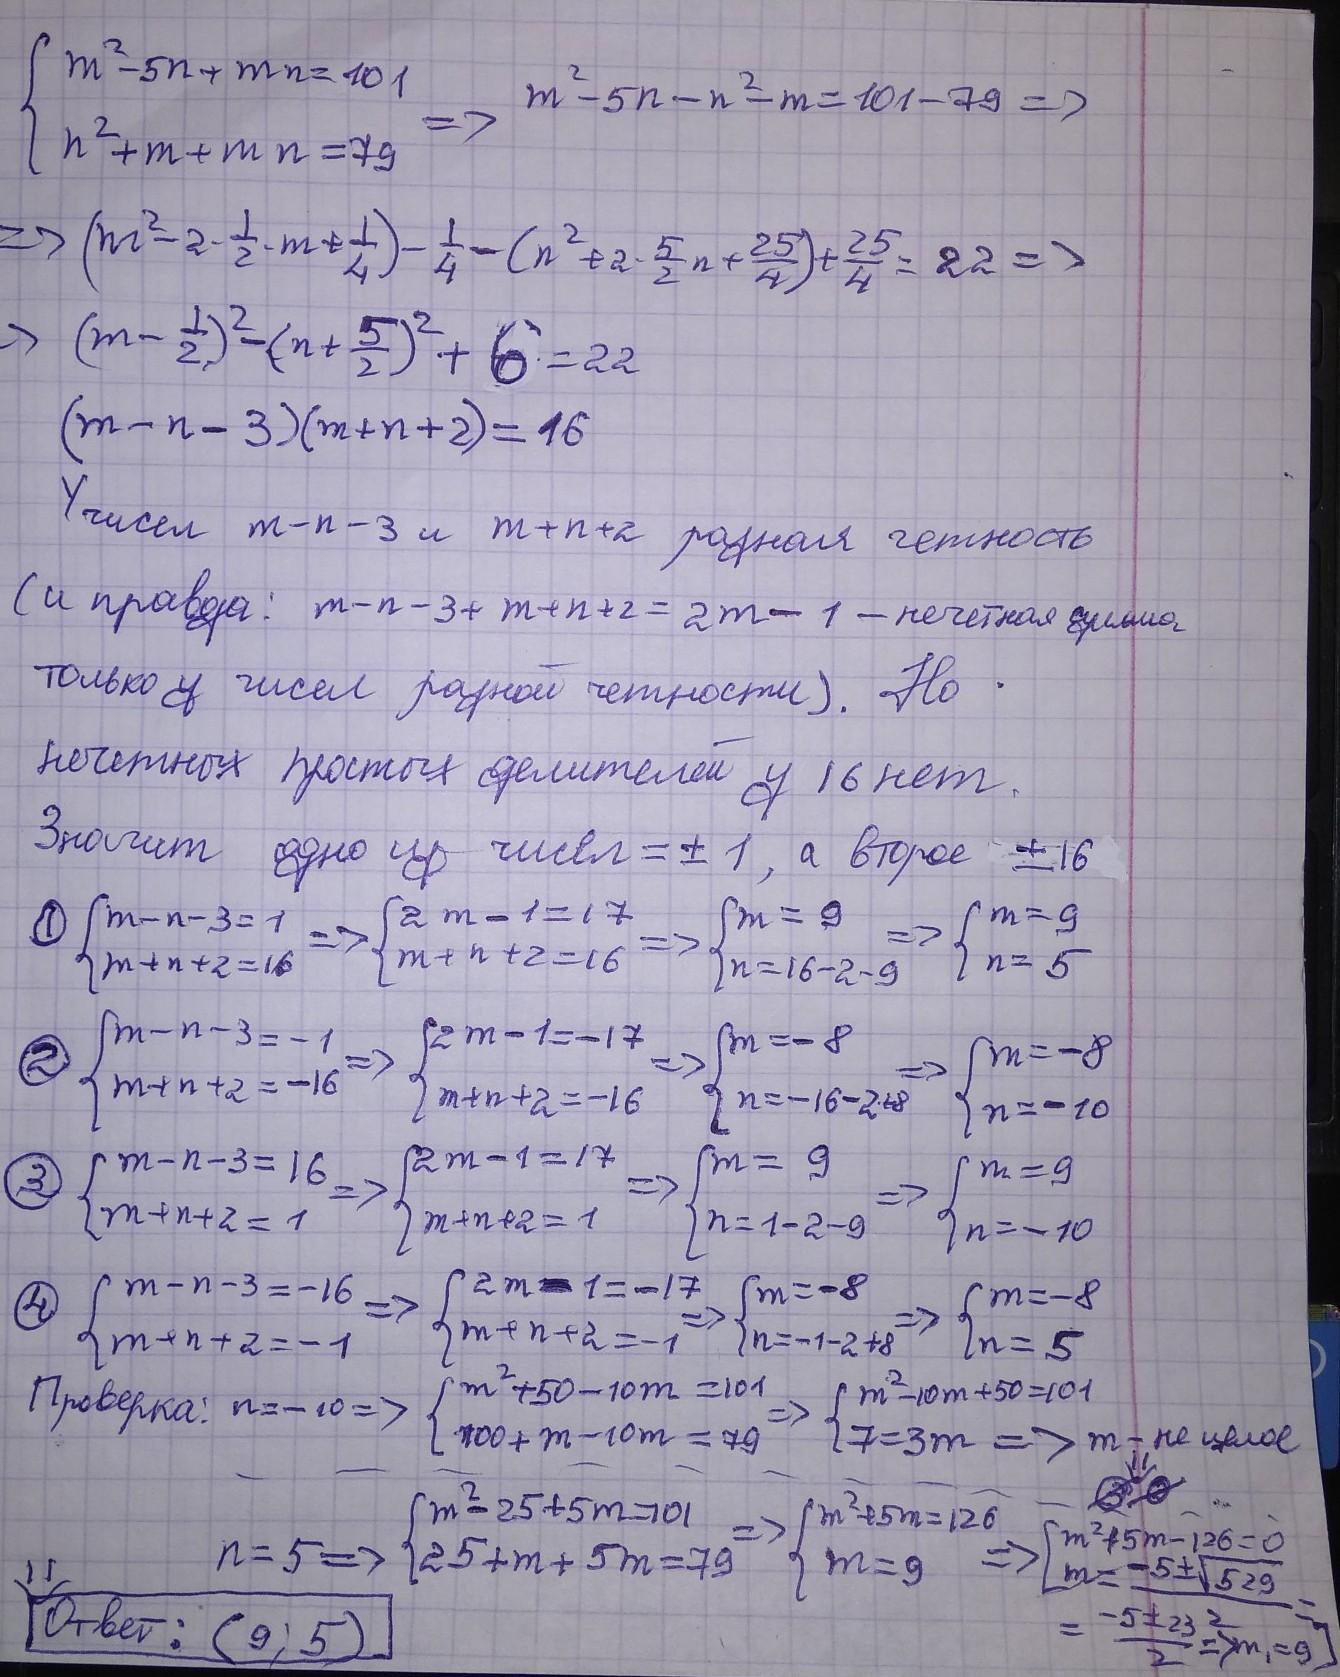 { m²-5n+mn=101
{ n²+m+mn=79 => m²-5n-n²-m=101-79 =>
=> (m²-2·1/2·m+1/4)-1/4-(n²+2·5/2n+25/4)+25/4=22 =>
=> (m-1/2)²-(n+5/2)²+6=22
(m-n-3)(m+n+2)=16
У чисел m-n-3 и m+n+2 разная четность
(и правда: m-n-3+m+n+2=2m-1 – нечетная сумма
только у чисел разной четности). Но
нечетных простых делителей у 16 нет.
Значит одно из чисел =±1, а второе ±16
① { m-n-3=1 => { 2m-1=17 => { m=9 => { m=9
{ m+n+2=16 { m+n+2=16 { n=16-2-9 { n=5
② { m-n-3=-1 => { 2m-1=-17 => { m=-8 => { m=-8
{ m+n+2=-16 { m+n+2=-16 { n=-16-2+8 { n=-10
③ { m-n-3=16 => { 2m-1=17 => { m=9 => { m=9
{ m+n+2=1 { m+n+2=1 { n=1-2-9 { n=-10
④ { m-n-3=-16 => { 2m-1=-17 => { m=-8 => { m=-8
{ m+n+2=-1 { m+n+2=-1 { n=-1-2+8 { n=5
Проверка: n=-10 => { m²+50-10m=101 => { m²-10m+50=101
{ 100+m-10m=79 { 7=3m => m – не целое
n=5 => { m²-25+5m=101 => { m²+5m=126 => { m²+5m-126=0
{ 25+m+5m=79 { m=9 { m=-5±√529/2 =
= -5±23/2 => m₁=9
Ответ: (9; 5)